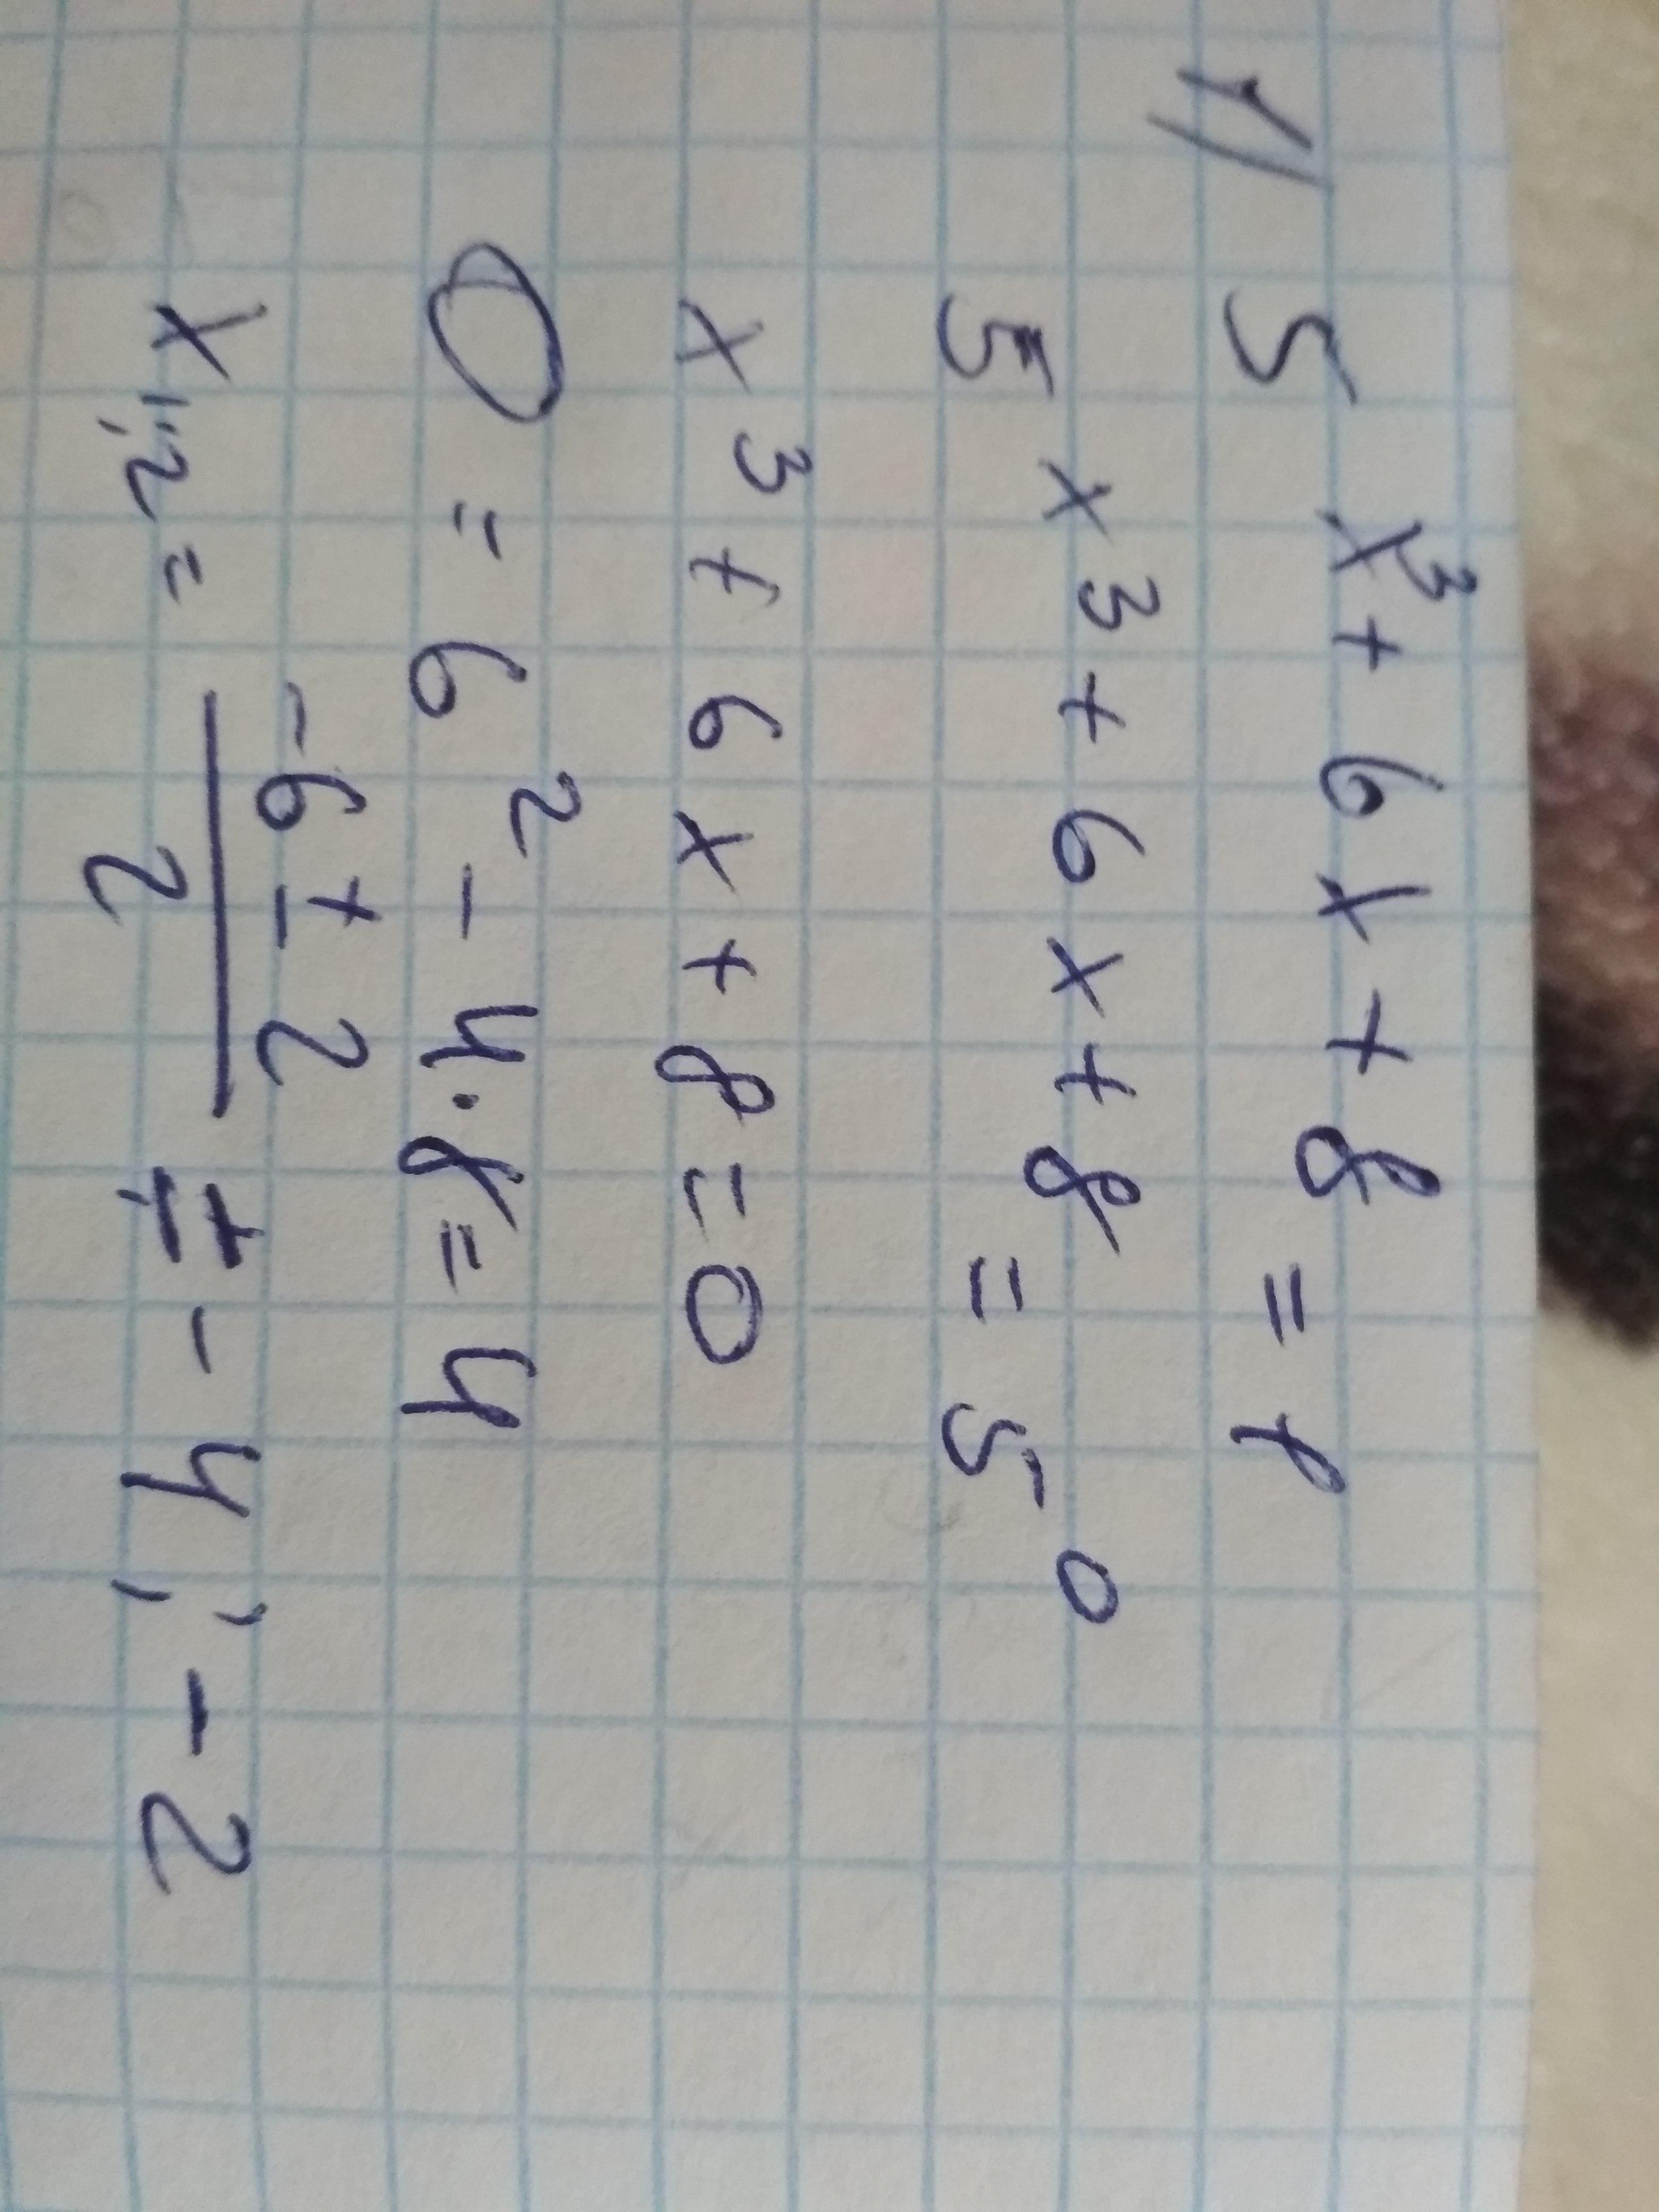 1) 5^{x^3+6x+8} = 1
5^{x^3+6x+8} = 5^0
x^3 + 6x + 8 = 0
D = 6^2 - 4·8 = 4
x_{1,2} = \frac{-6 ± 2}{2} = -4; -2